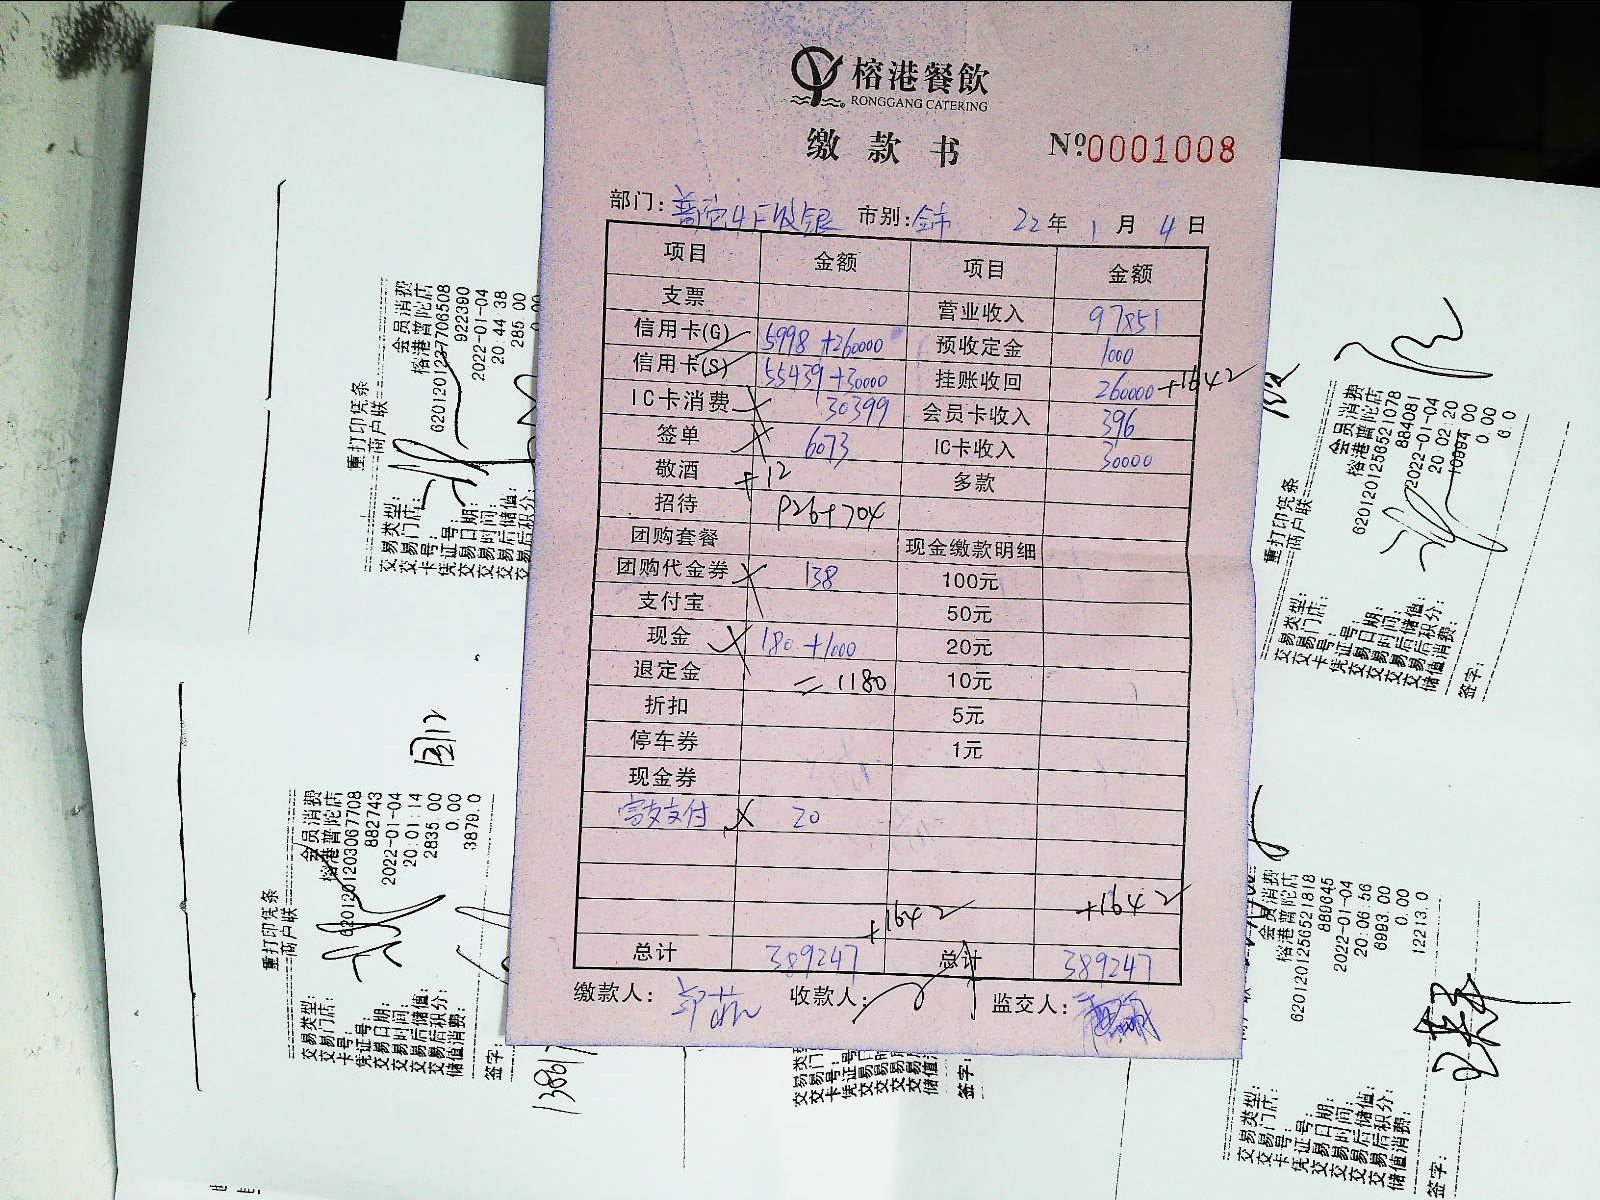 榕港餐飲
RONGGANG CATERING
缴款书 Nº 0001008
部门: 市别: 22年1月4日
项目 金额 项目 金额
支票 营业收入 97851
信用卡(G) 5998+260000 预收定金 1000
信用卡(S) 55439+30000 挂账收回 260000+1642
IC卡消费 30399 会员卡收入 396
签单 6073 IC卡收入 30000
敬酒 +12 多款
招待 926+704
团购套餐 现金缴款明细
团购代金券 138 100元
支付宝 50元
现金 180+1000 20元
退定金 =1180 10元
折扣 5元
停车券 1元
现金券
支付 20
+1642 +1642
总计 389247 总计 389247
缴款人: 收款人: 监交人:
重打印凭条
商户联
交易类型: 会员消费
交易门店: 榕港普陀店
卡号: 6201201237706508
凭证号: 922390
交易日期: 2022-01-04
交易时间: 20:44:38
交易后储值: 285.00
交易后积分:
重打印凭条
商户联
交易类型: 会员消费
交易门店: 榕港普陀店
卡号: 6201201203067708
凭证号: 882743
交易日期: 2022-01-04
交易时间: 20:01:14
交易后储值: 2835.00
交易后积分: 0.00
储值消费: 3879.0
签字:
重打印凭条
商户联
交易类型: 会员消费
交易门店: 榕港普陀店
卡号: 6201201256521078
凭证号: 884081
交易日期: 2022-01-04
交易时间: 20:02:20
交易后储值: 10994.00
交易后积分: 0.00
储值消费:
签字:
交易类型: 会员消费
交易门店: 榕港普陀店
卡号: 6201201256521818
凭证号: 889645
交易日期: 2022-01-04
交易时间: 20:06:56
交易后储值: 6993.00
交易后积分: 0.00
储值消费: 12213.0
签字:
交易门店:
卡号:
凭证号
交易日期
签字: